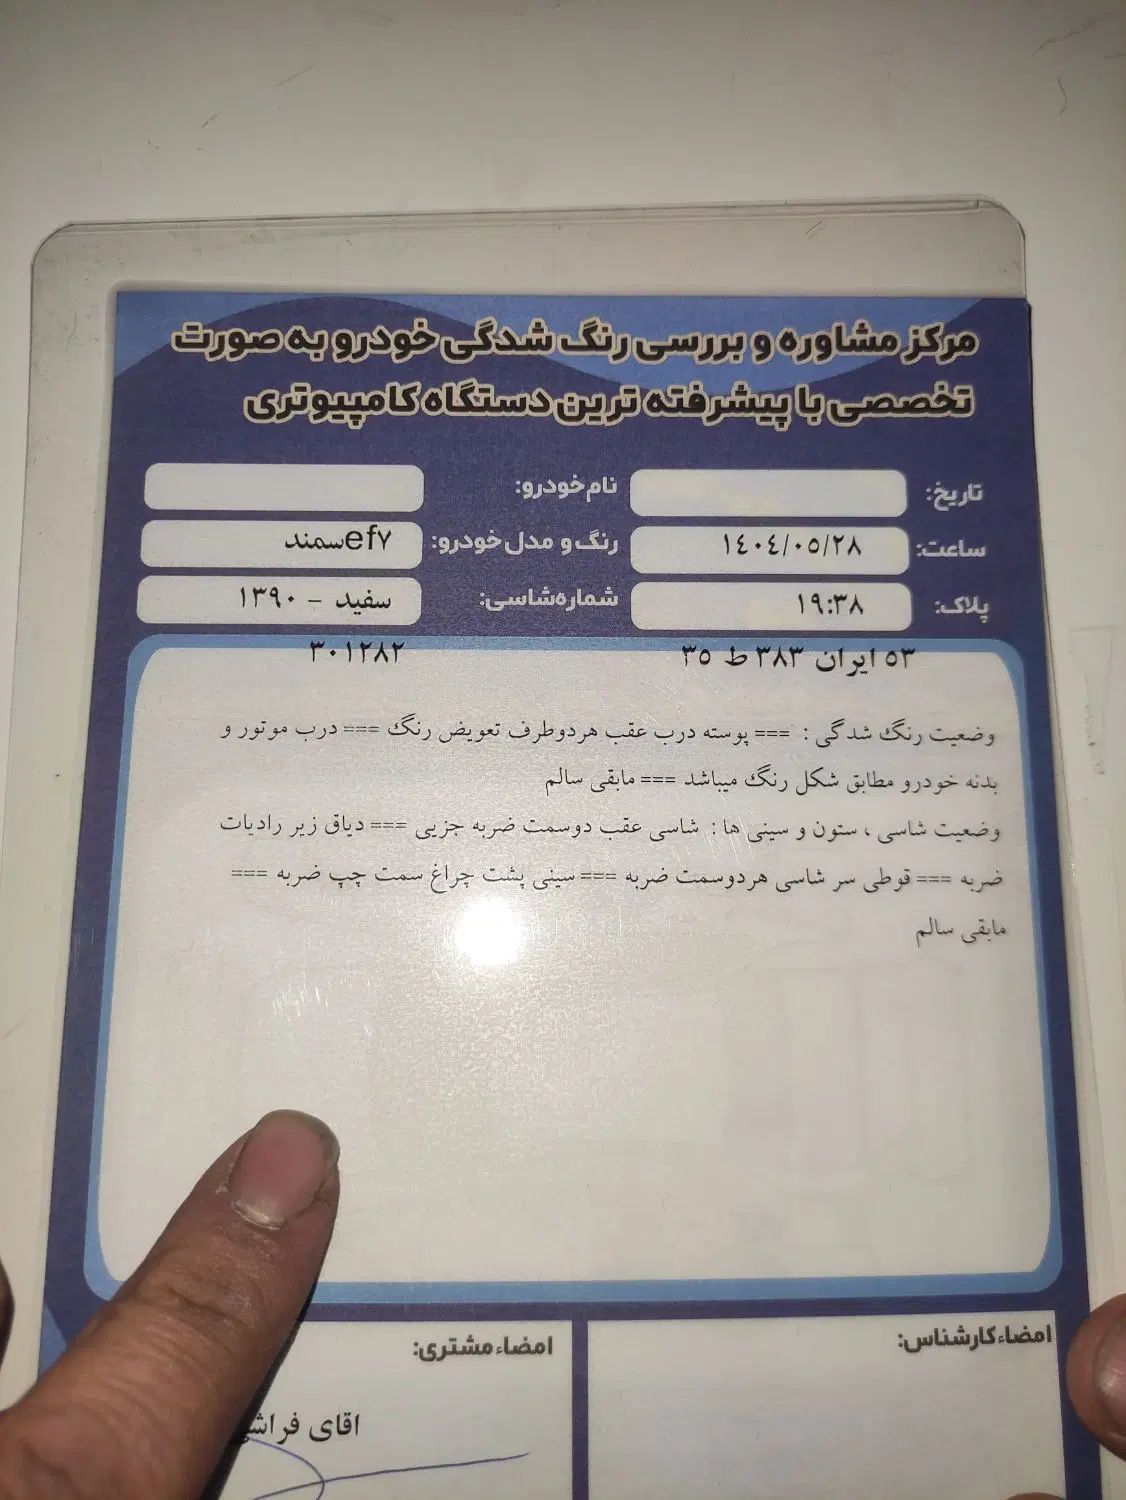 مرکز مشاوره و بررسی رنگ شدگی خودرو به صورت
تخصصی با پیشرفته ترین دستگاه کامپیوتری
تاریخ: نام خودرو:
ساعت: ١٤٠٤/٠٥/٢٨ رنگ و مدل خودرو: سمندef٧
پلاک: ١٩:٣٨ شماره شاسی: سفید - ١٣٩٠
٥٣ ایران ٣٨٣ ط ٣٥ ٣٠١٢٨٢
وضعیت رنگ شدگی : === پوسته درب عقب هردوطرف تعویض رنگ === درب موتور و
بدنه خودرو مطابق شکل رنگ میباشد === مابقی سالم
وضعیت شاسی ، ستون و سینی ها : شاسی عقب دوسمت ضربه جزیی === دیاق زیر رادیات
ضربه === قوطی سر شاسی هردوسمت ضربه === سینی پشت چراغ سمت چپ ضربه ===
مابقی سالم
امضاء کارشناس: امضاء مشتری:
اقای